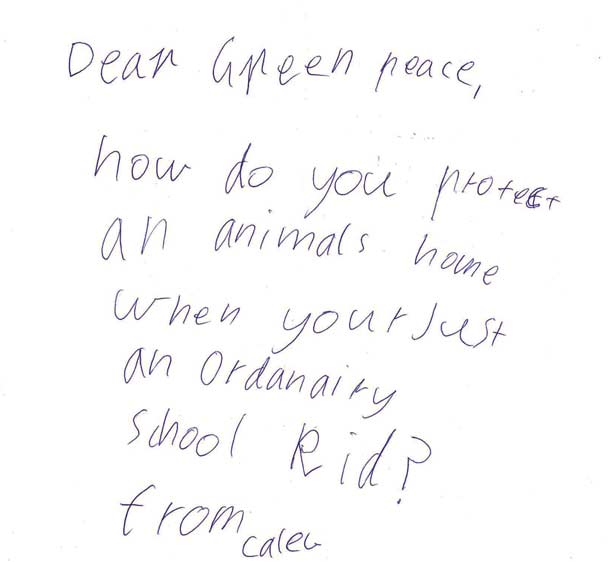 Dear Green peace,
how do you protect
an animals home
when your Just
an Ordanairy
School Kid?
from